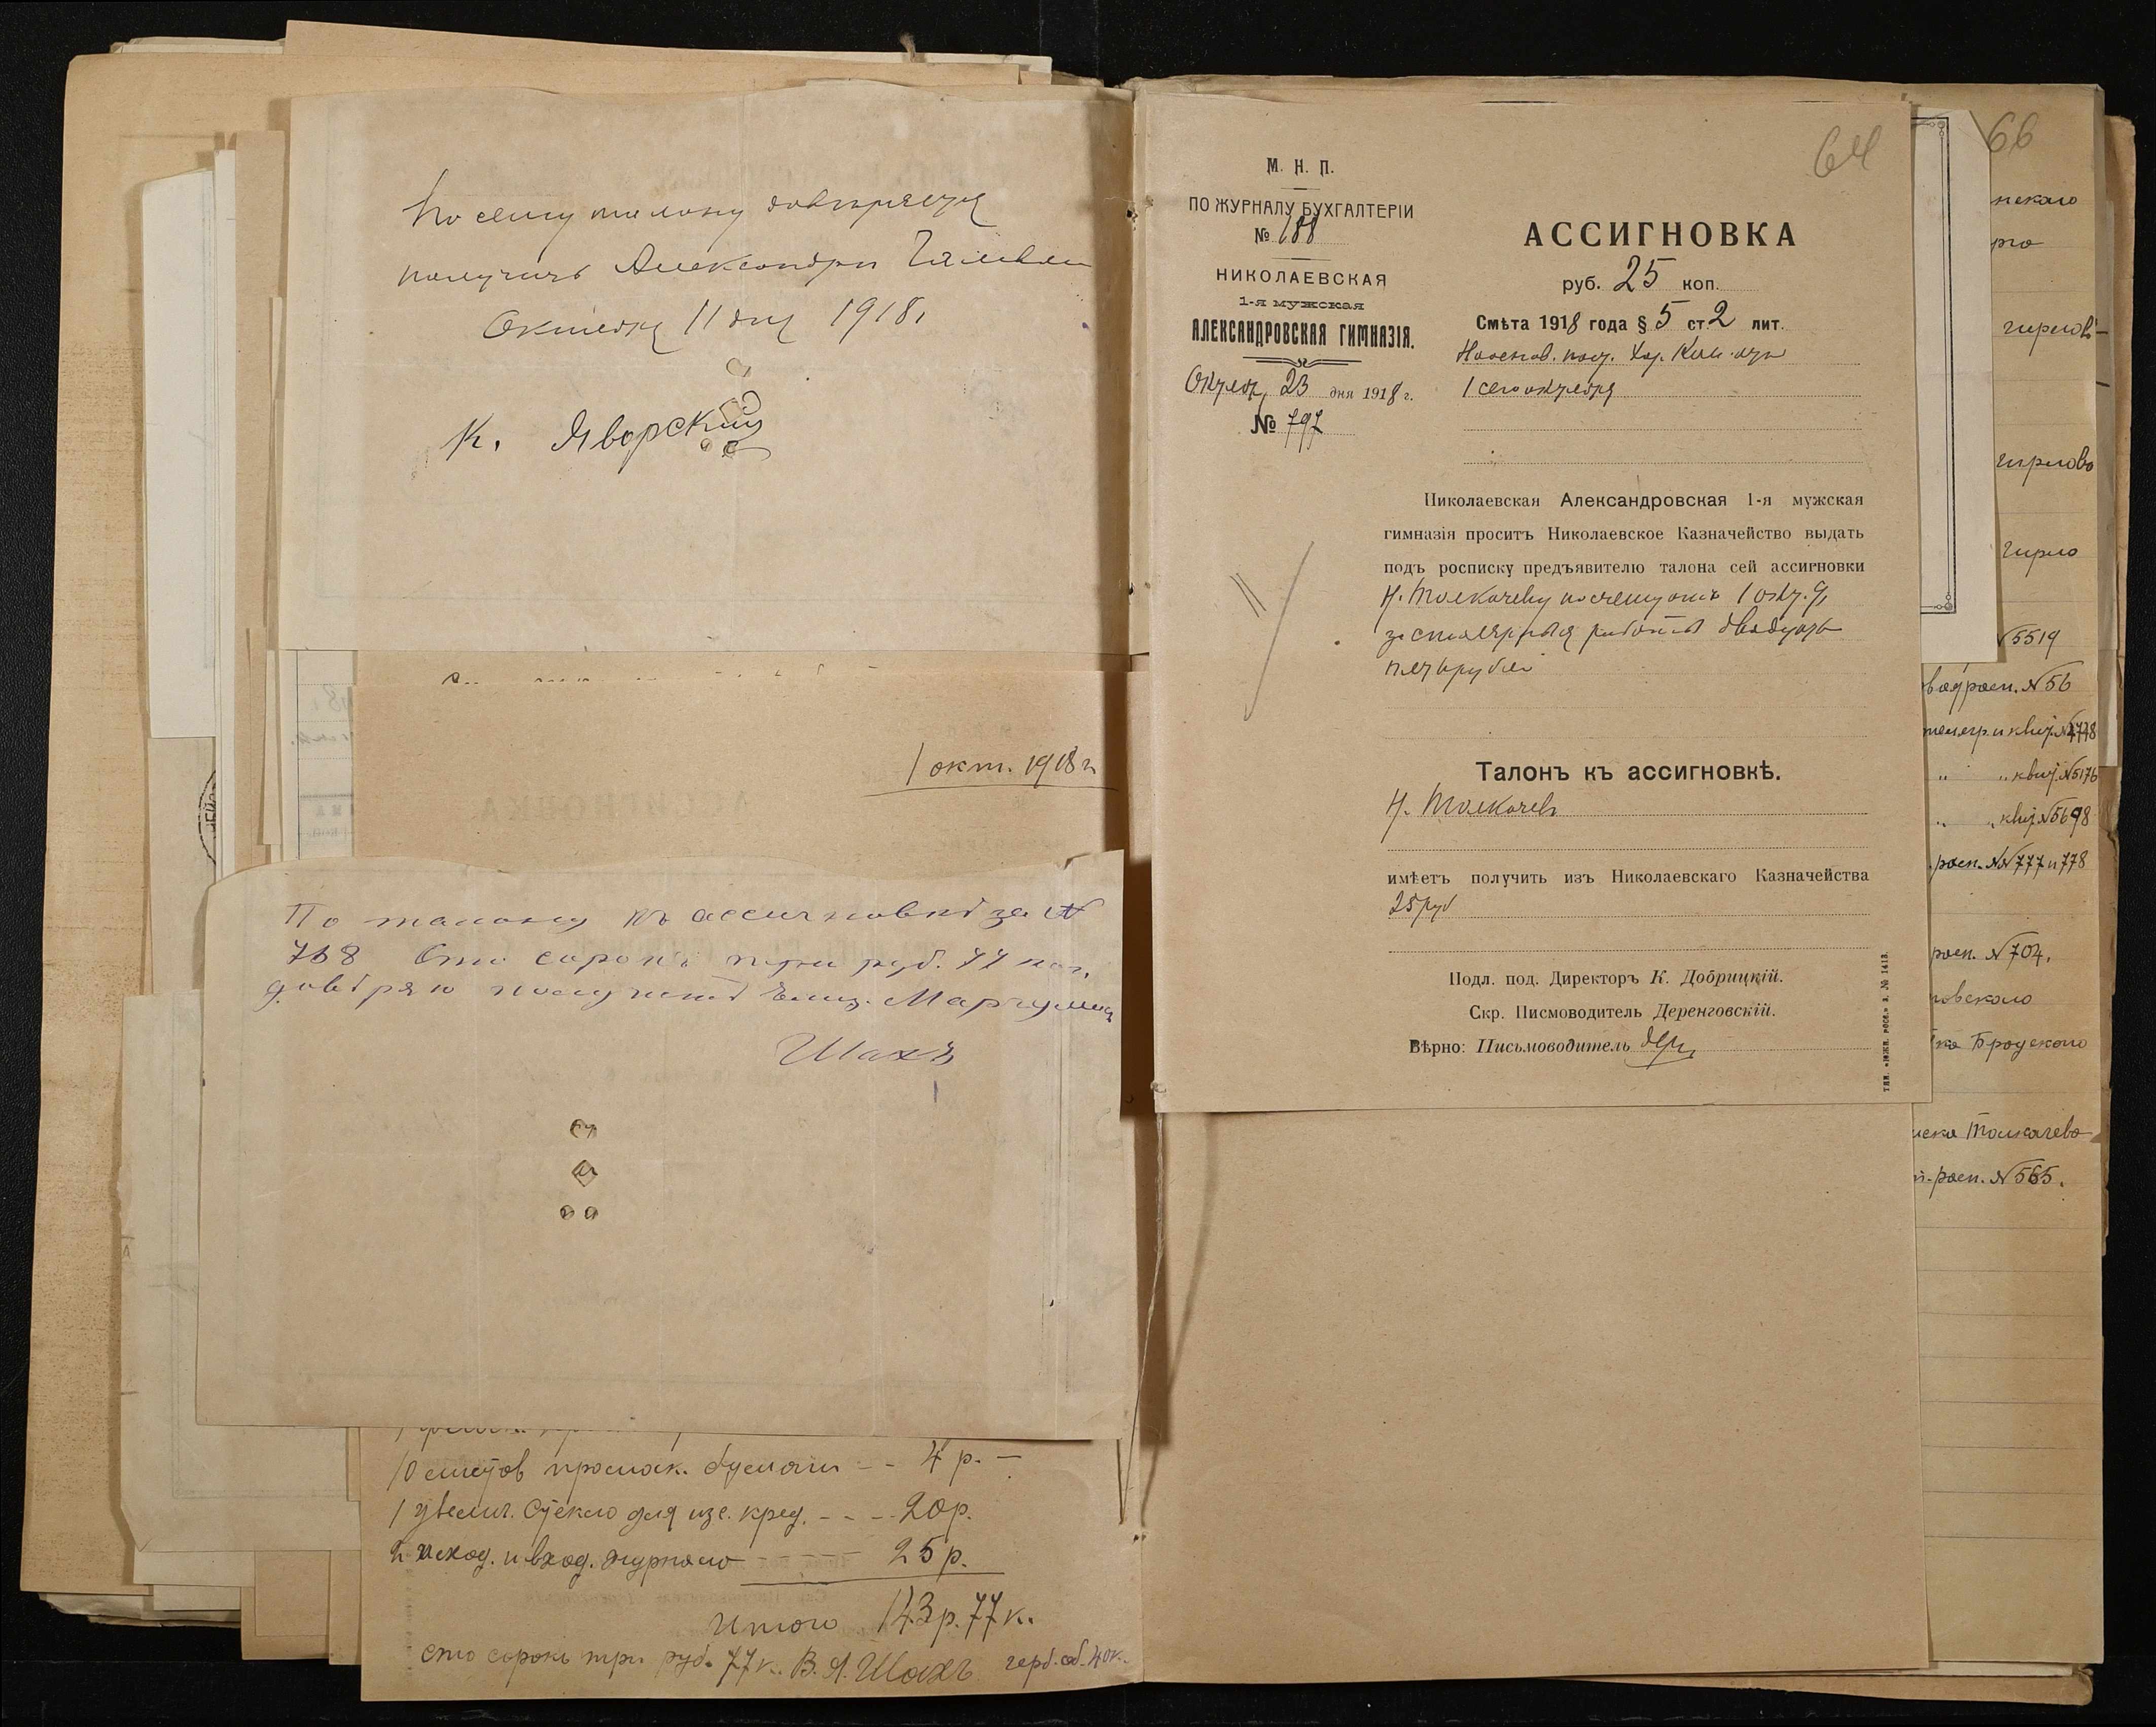 По сему талону довѣряется
получить Александрѣ
Октября 11 дня 1918 г.
К. Яворский
1 окт. 1918 г.
По талону къ ассигновкѣ за №
768 Сто сорокъ три руб. 77 коп.
довѣряю получить
Шахъ
10 листов промок. бумаги - - 4 р. -
1 увелич. стекло для изс. кред. - - - 20 р.
2 исход. и вход. журнала - - - - 25 р.
Итого 143 р. 77 к.
сто сорокъ три руб. 77 к. В. Я. Шахъ герб. сб. 40 к.
64
М. Н. П.
ПО ЖУРНАЛУ БУХГАЛТЕРІИ
№ 188
НИКОЛАЕВСКАЯ
1-я мужская
АЛЕКСАНДРОВСКАЯ ГИМНАЗІЯ.
Октяб, 23 дня 1918 г.
№ 797
АССИГНОВКА
руб. 25 коп.
Смѣта 1918 года § 5 ст. 2 лит.
На основ. пост. Хоз. Ком. отъ
1 сего октября
Николаевская Александровская 1-я мужская
гимназія проситъ Николаевское Казначейство выдать
подъ росписку предъявителю талона сей ассигновки
Н. Толкачеву по счету отъ 1 окт. с/г
за столярныя работы двадцать
пять рублей
Талонъ къ ассигновкѣ.
Н. Толкачевъ
имѣетъ получить изъ Николаевскаго Казначейства
25 руб
Подл. под. Директоръ К. Добрицкій.
Скр. Писмоводитель Деренговскій.
Вѣрно: Письмоводитель
тип. «южн. росс.» з. № 1413.
66
№ 5519
росп. № 56
телегр. и квит. № 4778
" " квит. № 5176
" " квит. № 5698
росп. №№ 777 и 778
росп. № 704.
Бродского
Толкачева
росп. № 565.